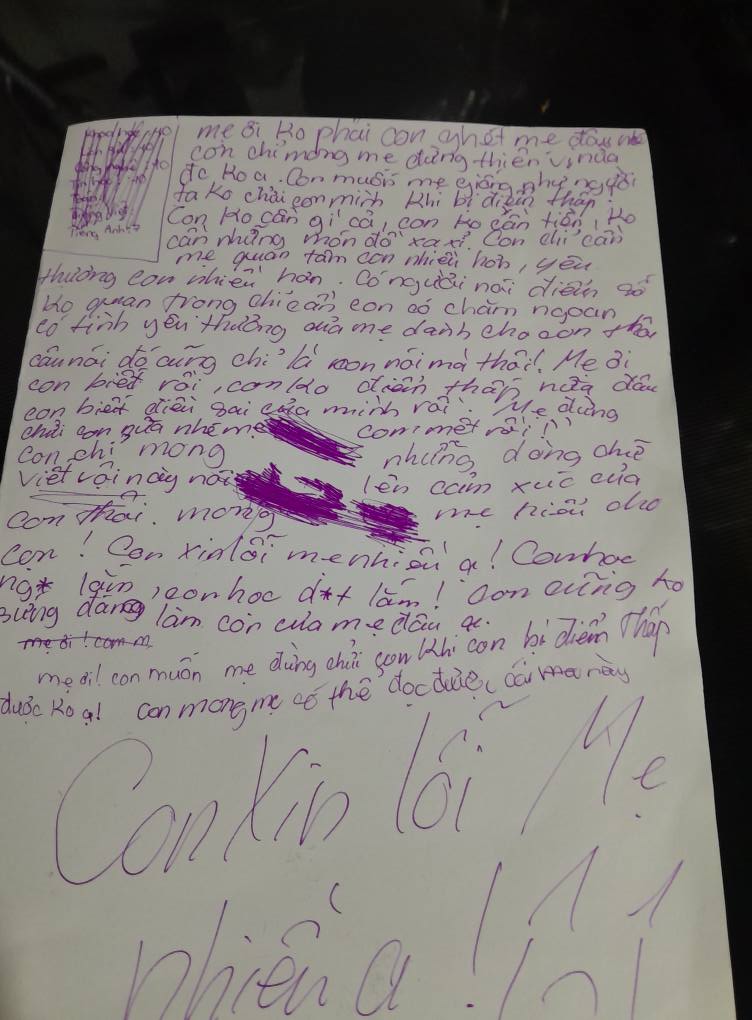 Tiếng Anh:
mẹ ơi ko phải con ghét mẹ đâu
con chỉ mong mẹ đừng thiên vị nữa
đc ko ạ. Con muốn mẹ giống như người
ta ko chửi con mình khi bị điểm thấp.
Con ko cần gì cả, con ko cần tiền, ko
cần những món đồ xa xỉ. Con chỉ cần
mẹ quan tâm con nhiều hơn, yêu
thương con nhiều hơn. Có người nói điểm số
ko quan trọng chỉ cần con có chăm ngoan
có tình yêu thương của mẹ dành cho con thôi
câu nói đó cũng chỉ là nói mà thôi! Mẹ ơi
con biết rồi, con ko điểm thấp nữa đâu
con biết điều sai của mình rồi. Mẹ đừng
chửi con nữa nhé mẹ con mệt rồi!
con chỉ mong những dòng chữ
viết vội này nói lên cảm xúc của
con thôi. mong mẹ hiểu cho
con! Con xin lỗi mẹ nhiều ạ! Con học
ng* lắm, con học d*t lắm! con cũng ko
xứng đáng làm con của mẹ đâu ạ.
mẹ ơi! con m
mẹ ơi! con muốn mẹ đừng chửi con khi con bị điểm thấp
được ko ạ! con mong mẹ có thể đọc được cái này
Con Xin lỗi Mẹ
nhiều ạ!